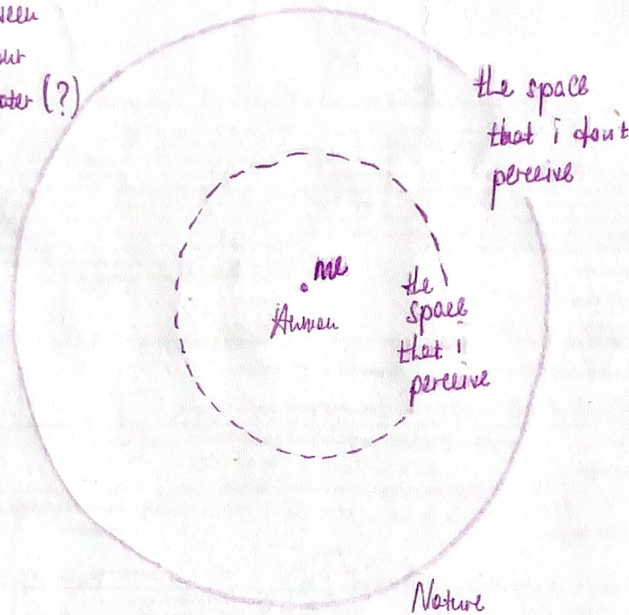 (?)
the space
that i don't
perceive
me
Human
the
space
that i
perceive
Nature